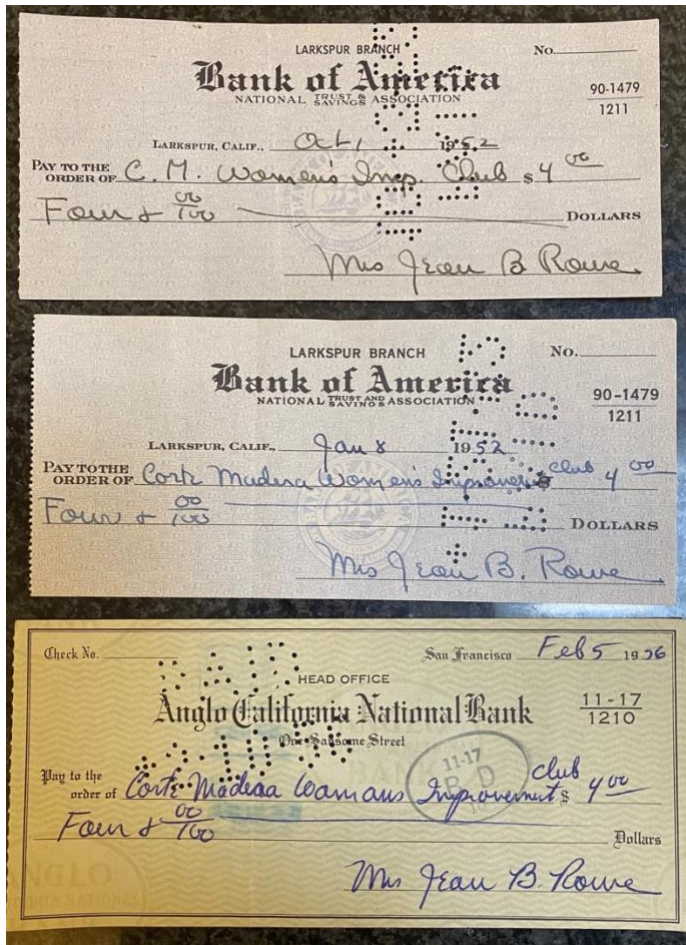 LARKSPUR BRANCH No.
Bank of America
NATIONAL TRUST & SAVINGS ASSOCIATION
90-1479
1211
LARKSPUR, CALIF., Oct, 1952
PAY TO THE ORDER OF C. M. Women's Imp. Club $4 00
Four & 00/100 DOLLARS
Mrs Jean B Rowe
LARKSPUR BRANCH No.
Bank of America
NATIONAL TRUST AND SAVINGS ASSOCIATION
90-1479
1211
LARKSPUR, CALIF., Jan 8 1952
PAY TO THE ORDER OF Corte Madera Women's club 4 00
Four & 00/100 DOLLARS
Mrs Jean B. Rowe
Check No. San Francisco Feb 5 1956
HEAD OFFICE
Anglo California National Bank
11-17
1210
One Sansome Street
PAID
11-17
Pay to the order of Corte Madera Womans Improvement club $ 4 00
Four & 00/100 Dollars
Mrs Jean B. Rowe